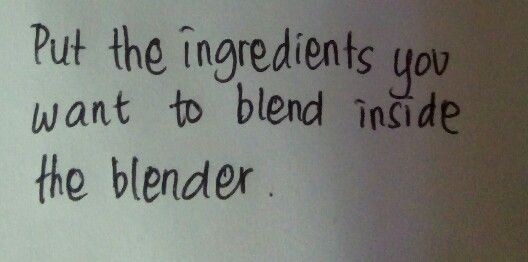 Put the ingredients you
want to blend inside
the blender.